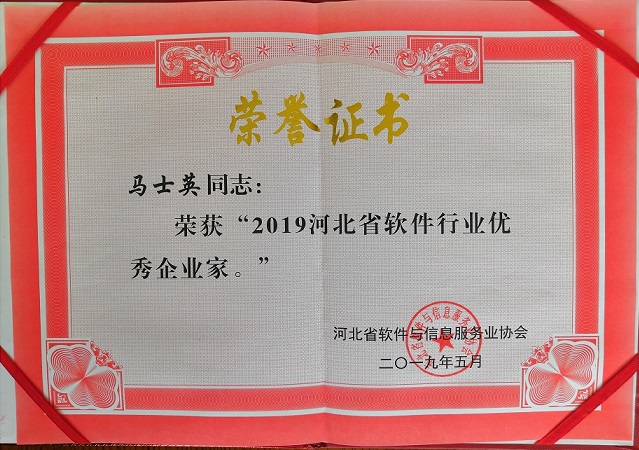 荣誉证书
马士英同志：
荣获“2019河北省软件行业优
秀企业家。”
河北省软件与信息服务业协会
二〇一九年五月